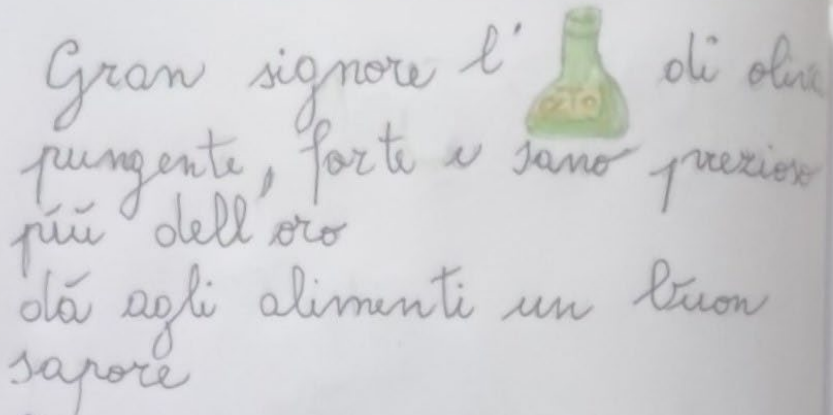 Gran signore l' OLIO di oliva
pungente, forte e sano prezioso
più dell'oro
dà agli alimenti un buon
sapore